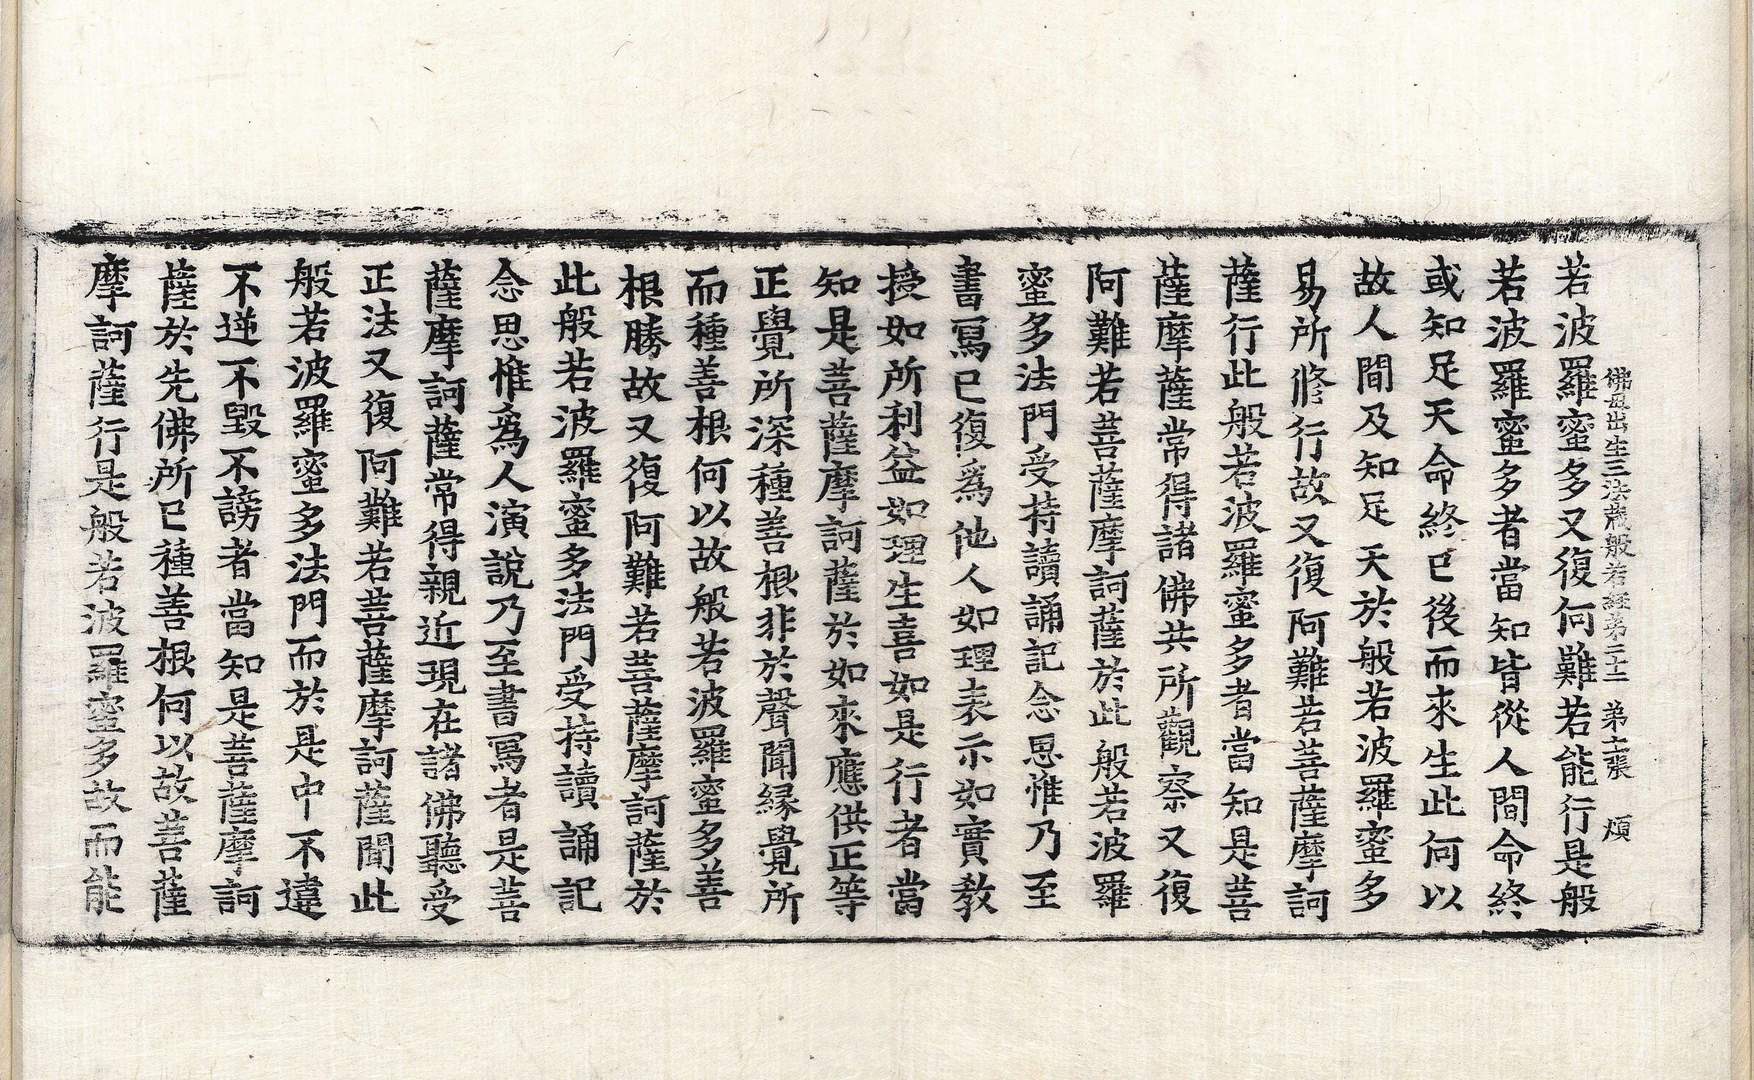 佛母出生三法藏般若經第二十二 第七張 煩
若波羅蜜多又復何難若能行是般
若波羅蜜多者當知皆從人間命終
或知足天命終已後而來生此何以
故人間及知足天於般若波羅蜜多
易所修行故又復阿難若菩薩摩訶
薩行此般若波羅蜜多者當知是菩
薩摩薩常得諸佛共所觀察又復
阿難若菩薩摩訶薩於此般若波羅
蜜多法門受持讀誦記念思惟乃至
書寫已復爲他人如理表示如實教
授如所利益如理生喜如是行者當
知是菩薩摩訶薩於如來應供正等
正覺所深種善根非於聲聞緣覺所
而種善根何以故般若波羅蜜多善
根勝故又復阿難若菩薩摩訶薩於
此般若波羅蜜多法門受持讀誦記
念思惟爲人演說乃至書寫者是菩
薩摩訶薩常得親近現在諸佛聽受
正法又復阿難若菩薩摩訶薩聞此
般若波羅蜜多法門而於是中不違
不逆不毀不謗者當知是菩薩摩訶
薩於先佛所已種善根何以故菩薩
摩訶薩行是般若波羅蜜多故而能